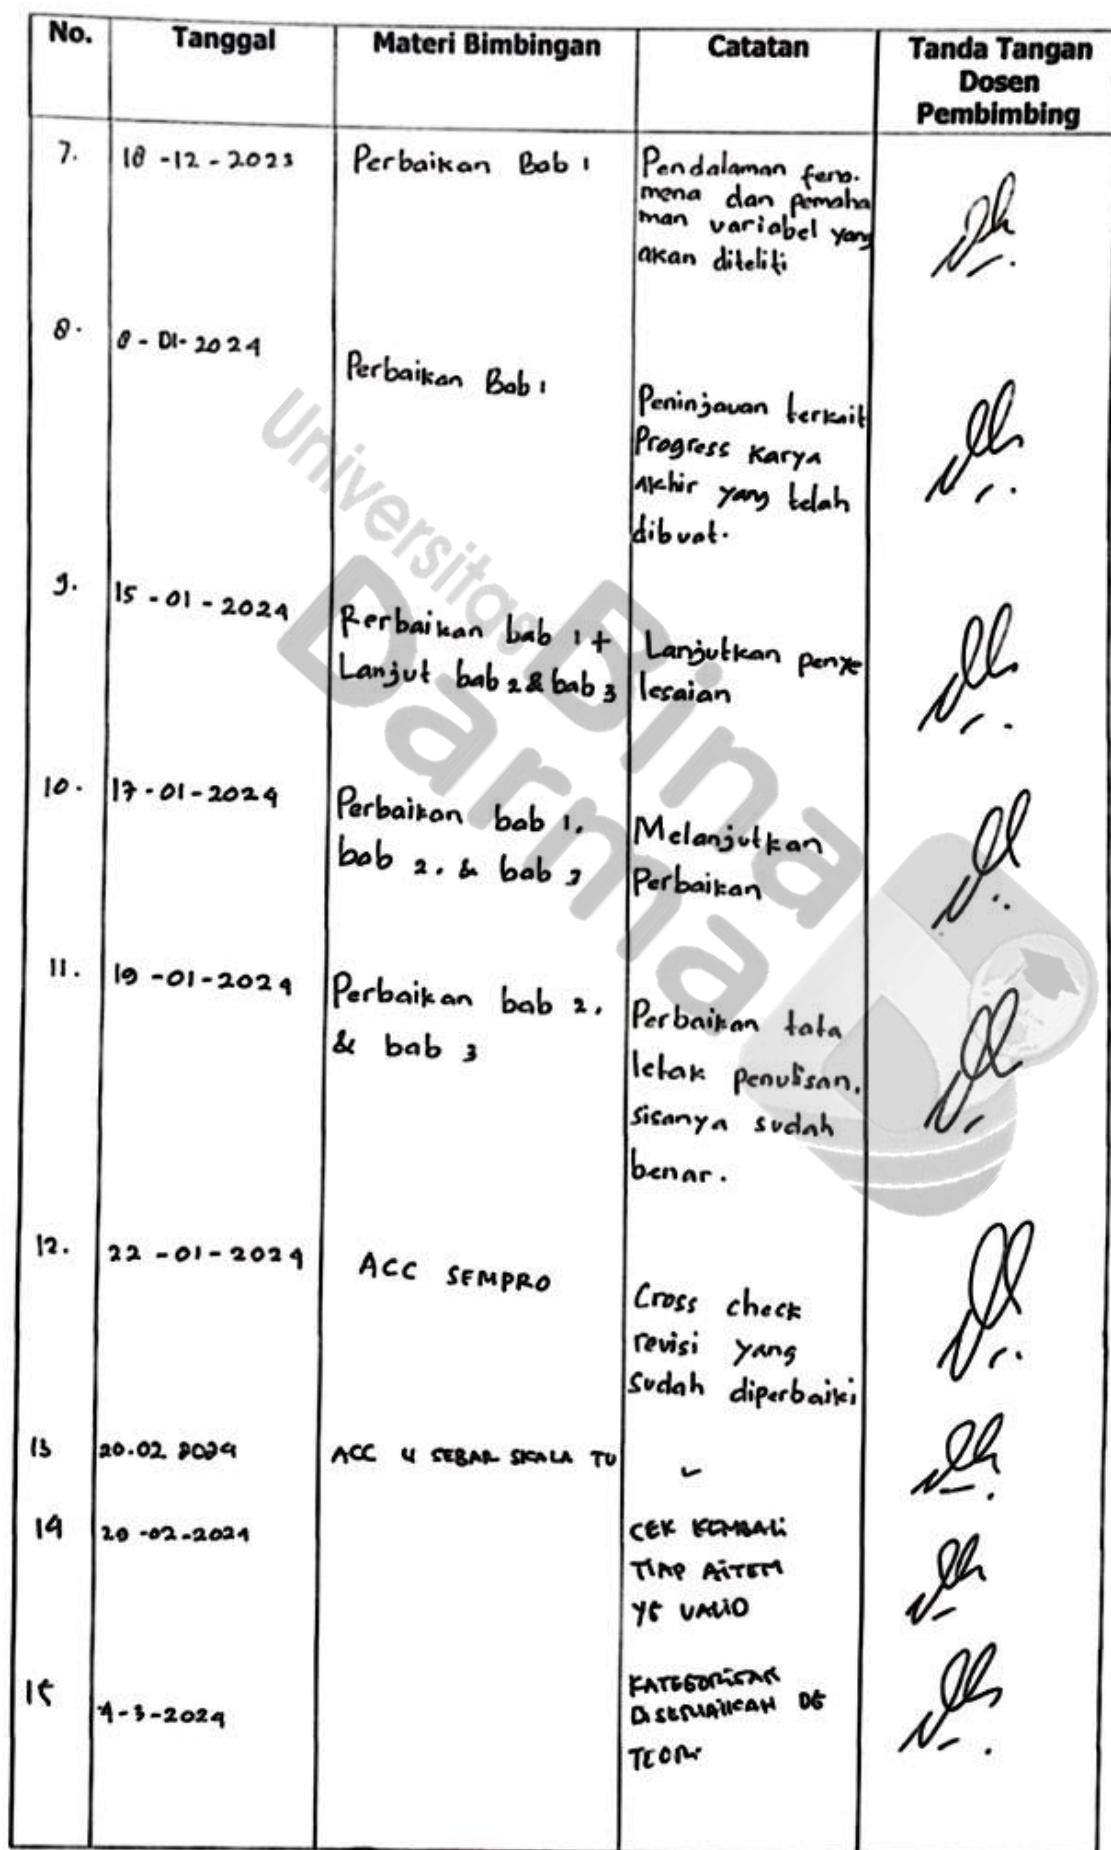 No. Tanggal Materi Bimbingan Catatan Tanda Tangan
Dosen
Pembimbing
7. 18 -12 - 2023 Perbaikan Bab 1 Pendalaman feno.
mena dan pemaha
man variabel yang
akan diteliti
8. 8 - 01- 2024 Perbaikan Bab 1 Peninjauan terkait
Progress Karya
Akhir yang telah
dibuat.
9. 15 - 01 - 2024 Perbaikan bab 1 + Lanjutkan penye
Lanjut bab 2 & bab 3 lesaian
10. 17-01-2024 Perbaikan bab 1, Melanjutkan
bab 2, & bab 3 Perbaikan
11. 19 -01-2024 Perbaikan bab 2, Perbaikan tata
& bab 3 letak penulisan,
sisanya sudah
benar.
12. 22 -01-2024 ACC SEMPRO Cross check
revisi yang
sudah diperbaiki
13 20.02 2024 ACC U SEBAR SKALA TU
14 20 -02-2024 CEK KEMBALI
TIAP AITEM
YG VALID
15 4-3-2024 KATEGORISASI
DISESUAIKAN DG
TEORI
Universitas
Bina
Darma